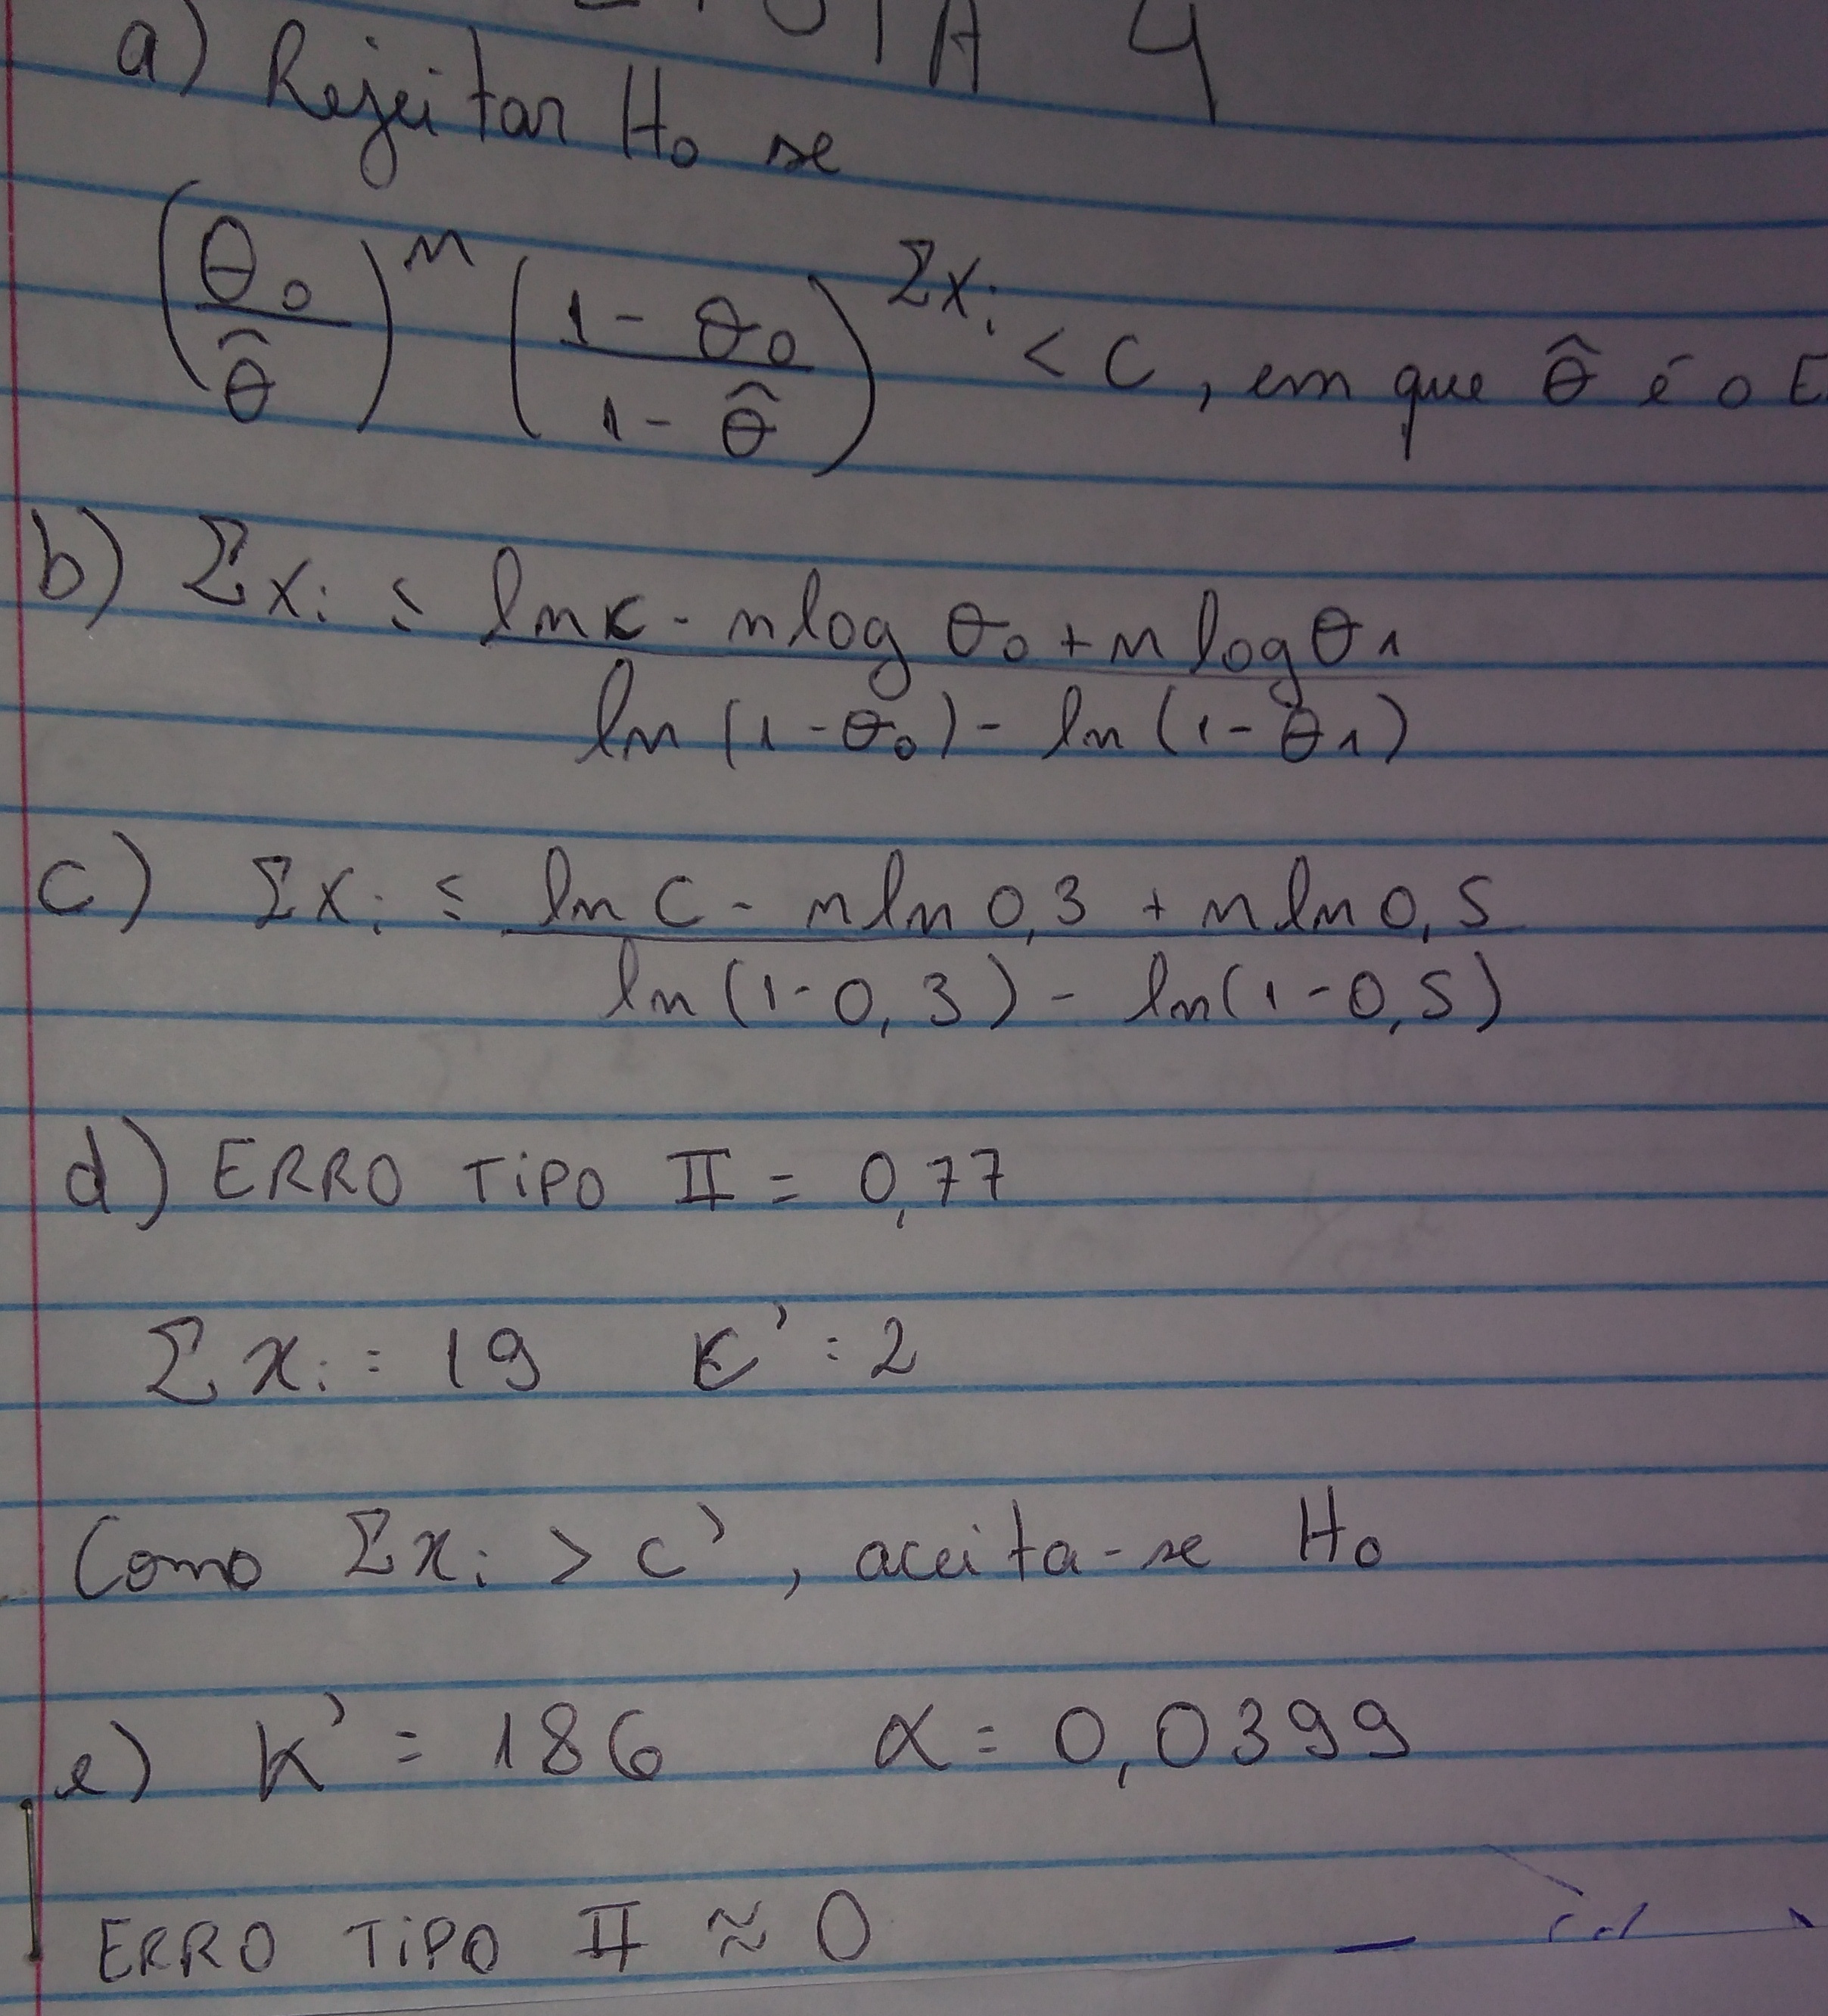 a) Rejeitar H₀ se
(θ₀/θ̂)ⁿ (1 - θ₀ / 1 - θ̂)^Σxᵢ < C, em que θ̂ é o E
b) Σxᵢ ≤ ln K - n log θ₀ + n log θ₁
ln (1 - θ₀) - ln (1 - θ₁)
c) Σxᵢ ≤ ln C - n ln 0,3 + n ln 0,5
ln (1-0,3) - ln (1-0,5)
d) ERRO TiPO II = 0,77
Σ xᵢ = 19 K' = 2
Como Σxᵢ > C', aceita-se H₀
e) K' = 186 α = 0,0399
ERRO TiPO II ≈ 0